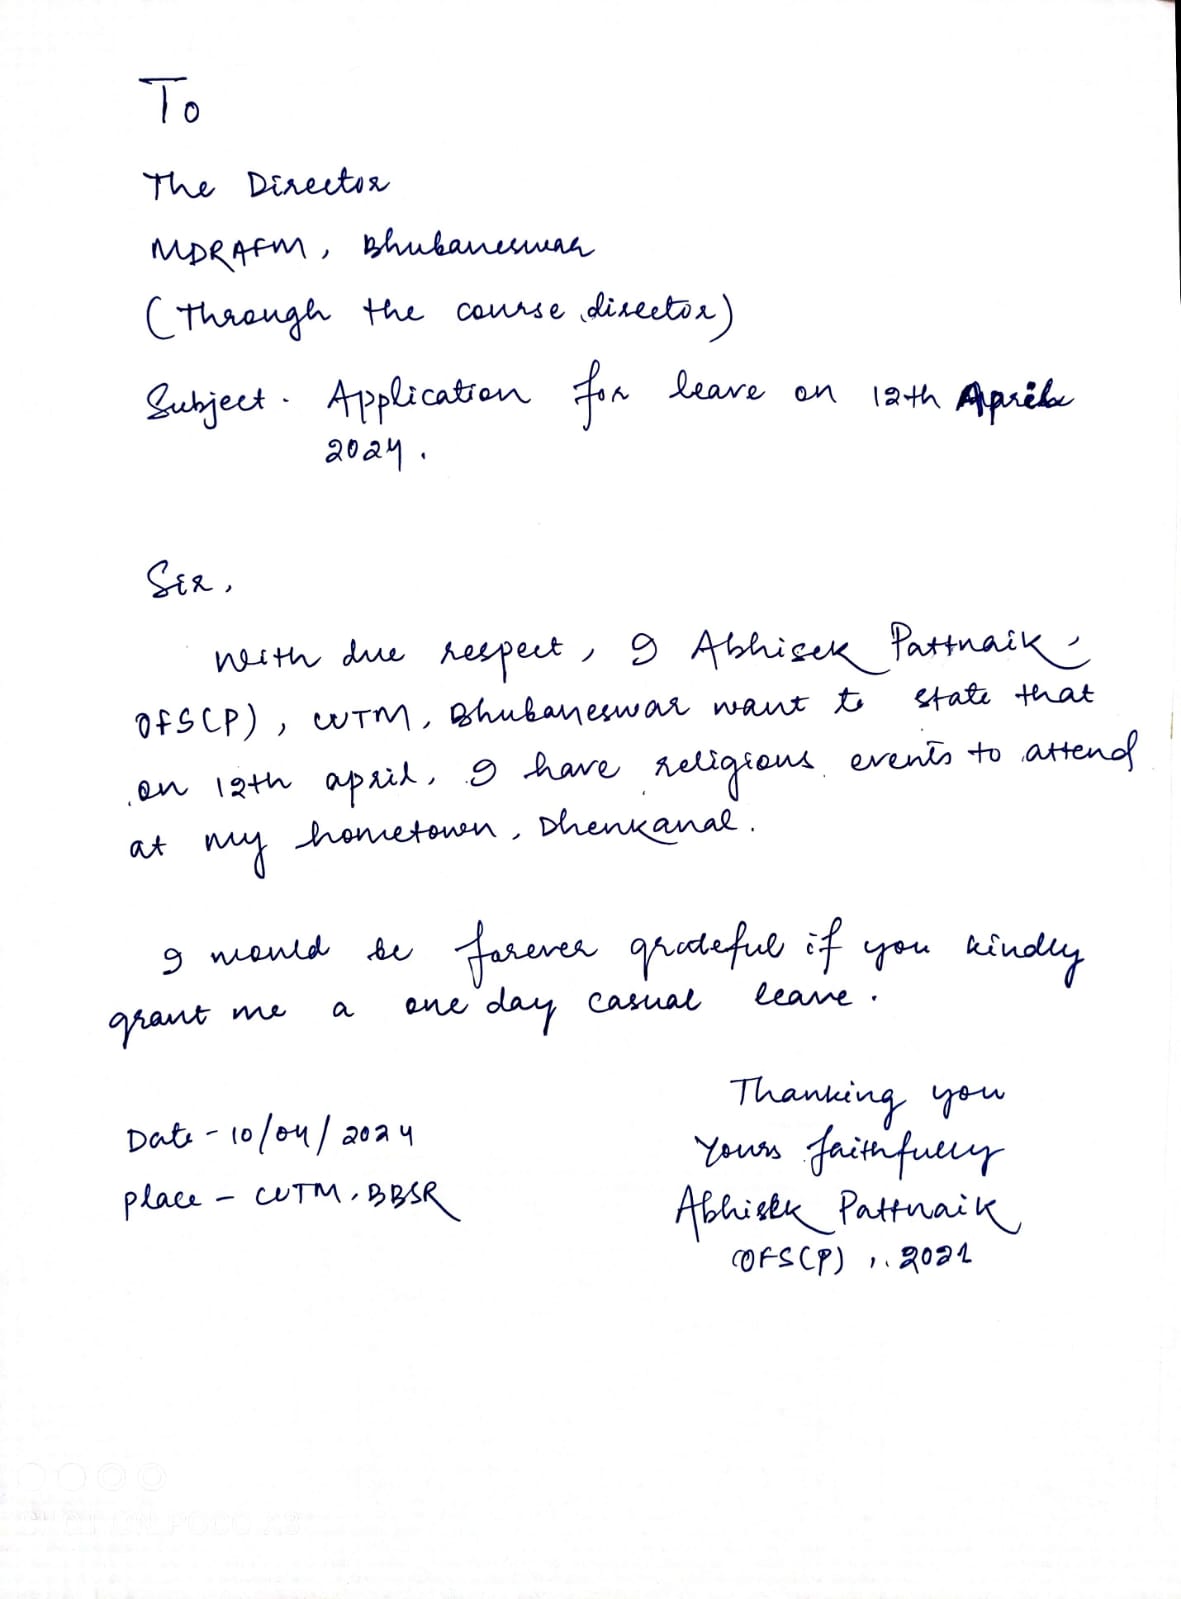 To
The Director
MDRAFM, Bhubaneswar
(Through the course director)
Subject. Application for leave on 12th April
2024.
Sir,
With due respect, I Abhisek Pattnaik,
OFS(P), CUTM, Bhubaneswar want to state that
on 12th april, I have religious events to attend
at my hometown, Dhenkanal.
I would be forever grateful if you kindly
grant me a one day casual leave.
Thanking you
Yours faithfully
Abhisek Pattnaik
OFS(P), 2021
Date - 10/04/2024
place - CUTM, BBSR